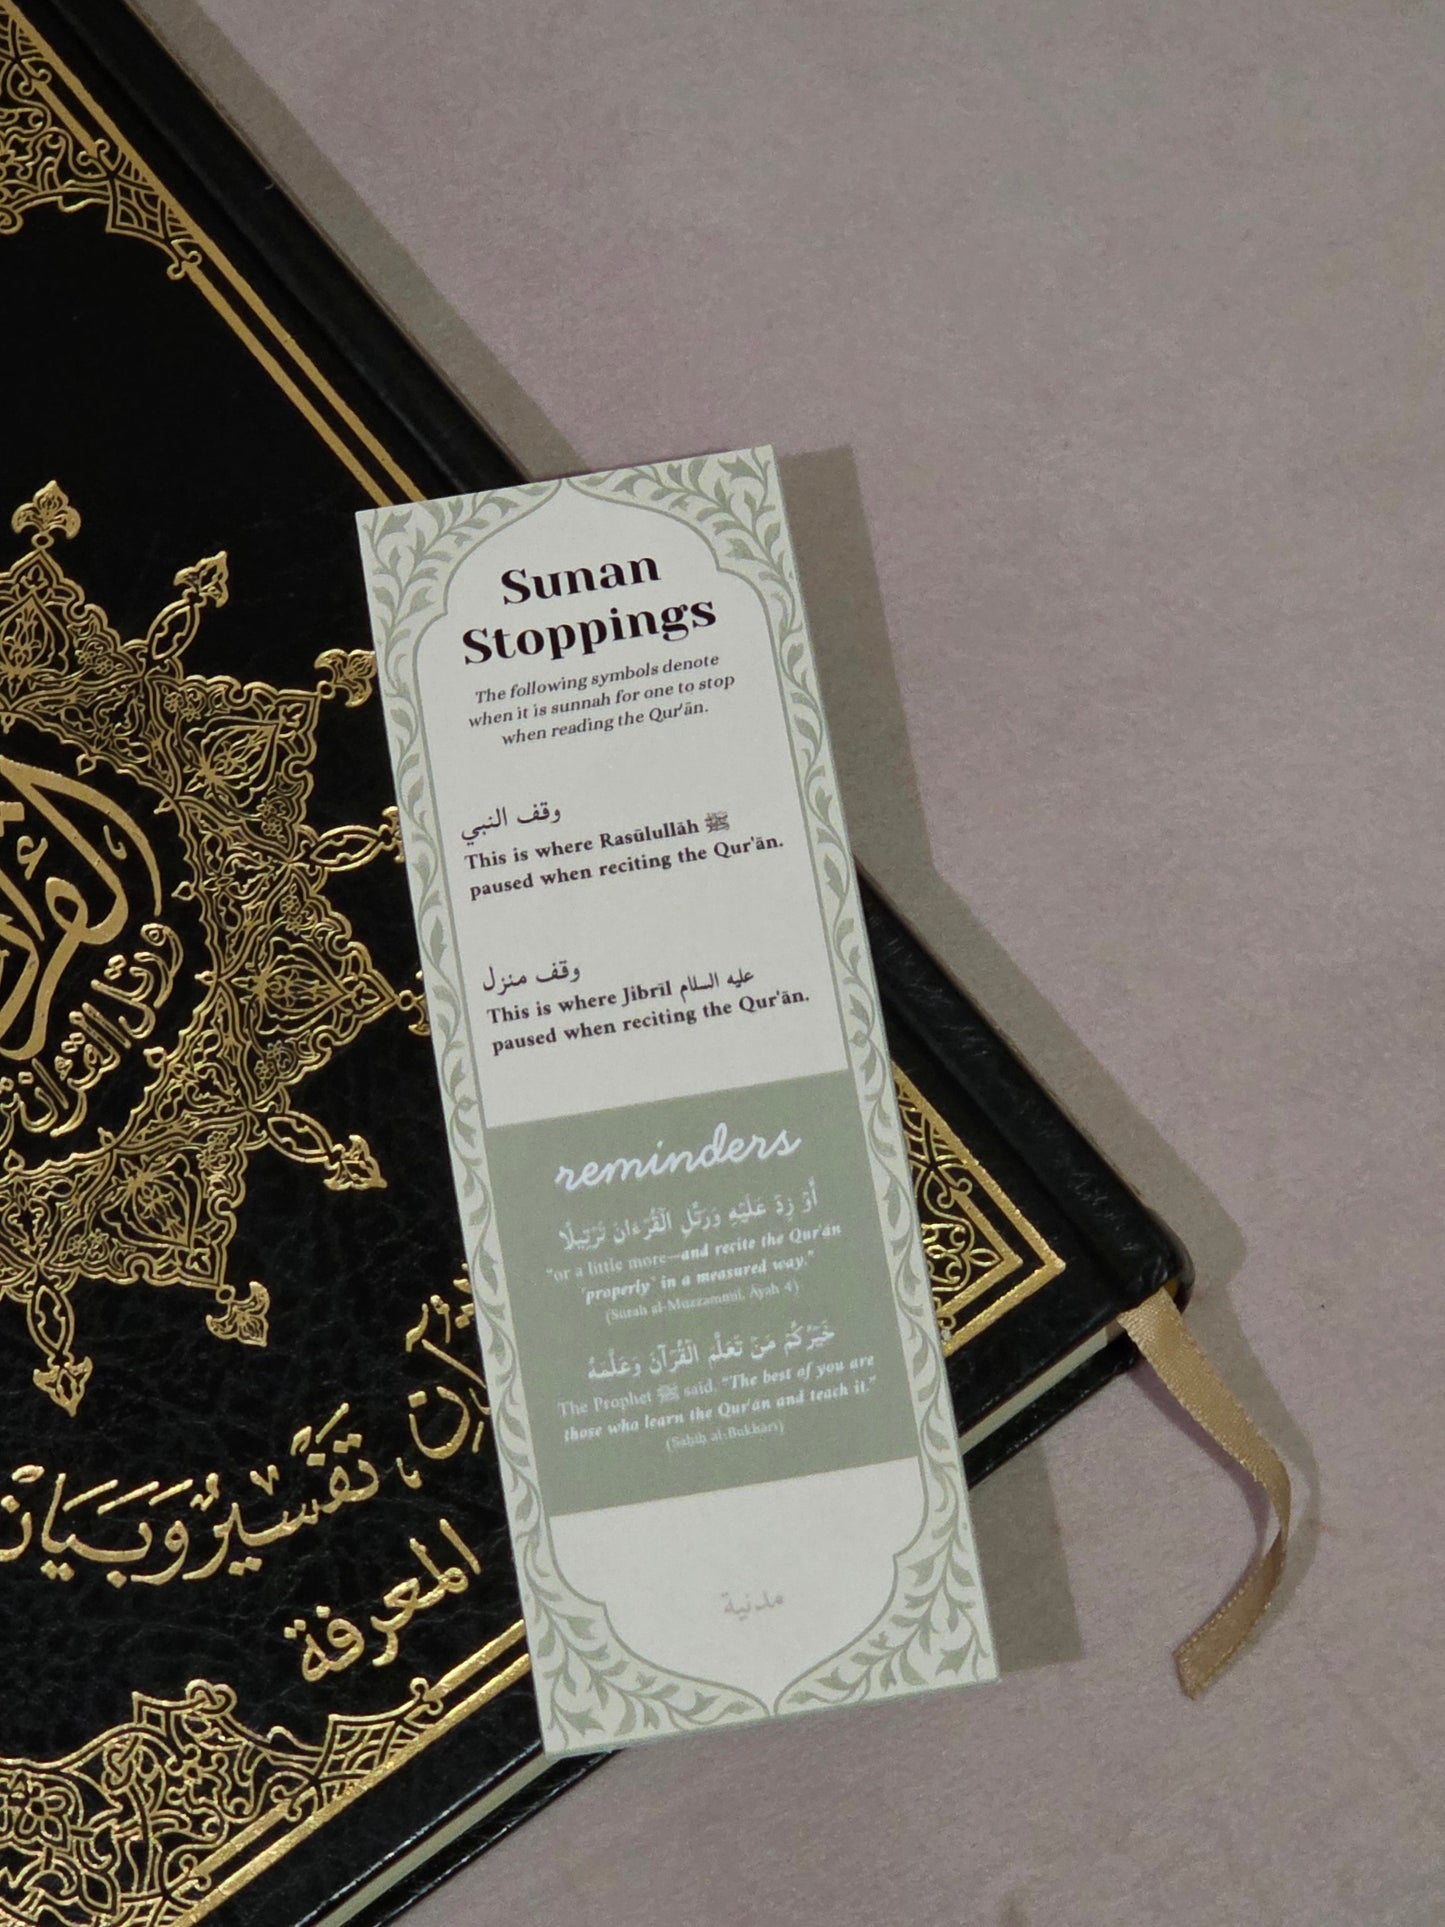 Sunan
Stoppings
The following symbols denote
when it is sunnah for one to stop
when reading the Qur'ān.
وقف النبي
This is where Rasūlullāh ﷺ
paused when reciting the Qur'ān.
وقف منزل
This is where Jibrīl عليه السلام
paused when reciting the Qur'ān.
reminders
أَوْ زِدْ عَلَيْهِ وَرَتِّلِ الْقُرْءَانَ تَرْتِيلًا
"or a little more—and recite the Qur'ān
˹properly˺ in a measured way."
(Sūrah al-Muzzammil, Āyah 4)
خَيْرُكُمْ مَنْ تَعَلَّمَ الْقُرْآنَ وَعَلَّمَهُ
The Prophet ﷺ said, "The best of you are
those who learn the Qur'ān and teach it."
(Sahīh al-Bukhārī)
مدنية
ورتل القرآن
تفسير وبيان
المعرفة